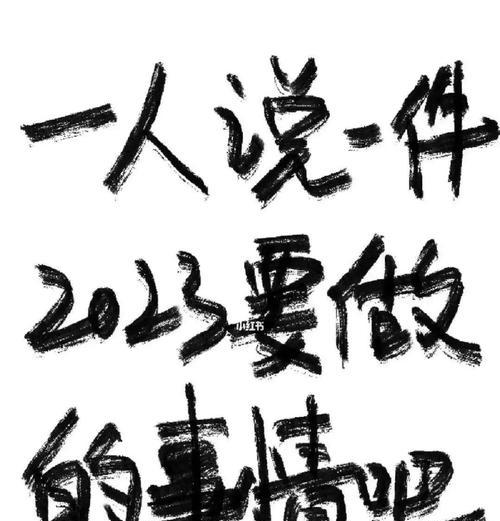 一人说一件
2023要做
小红书
的事情吧